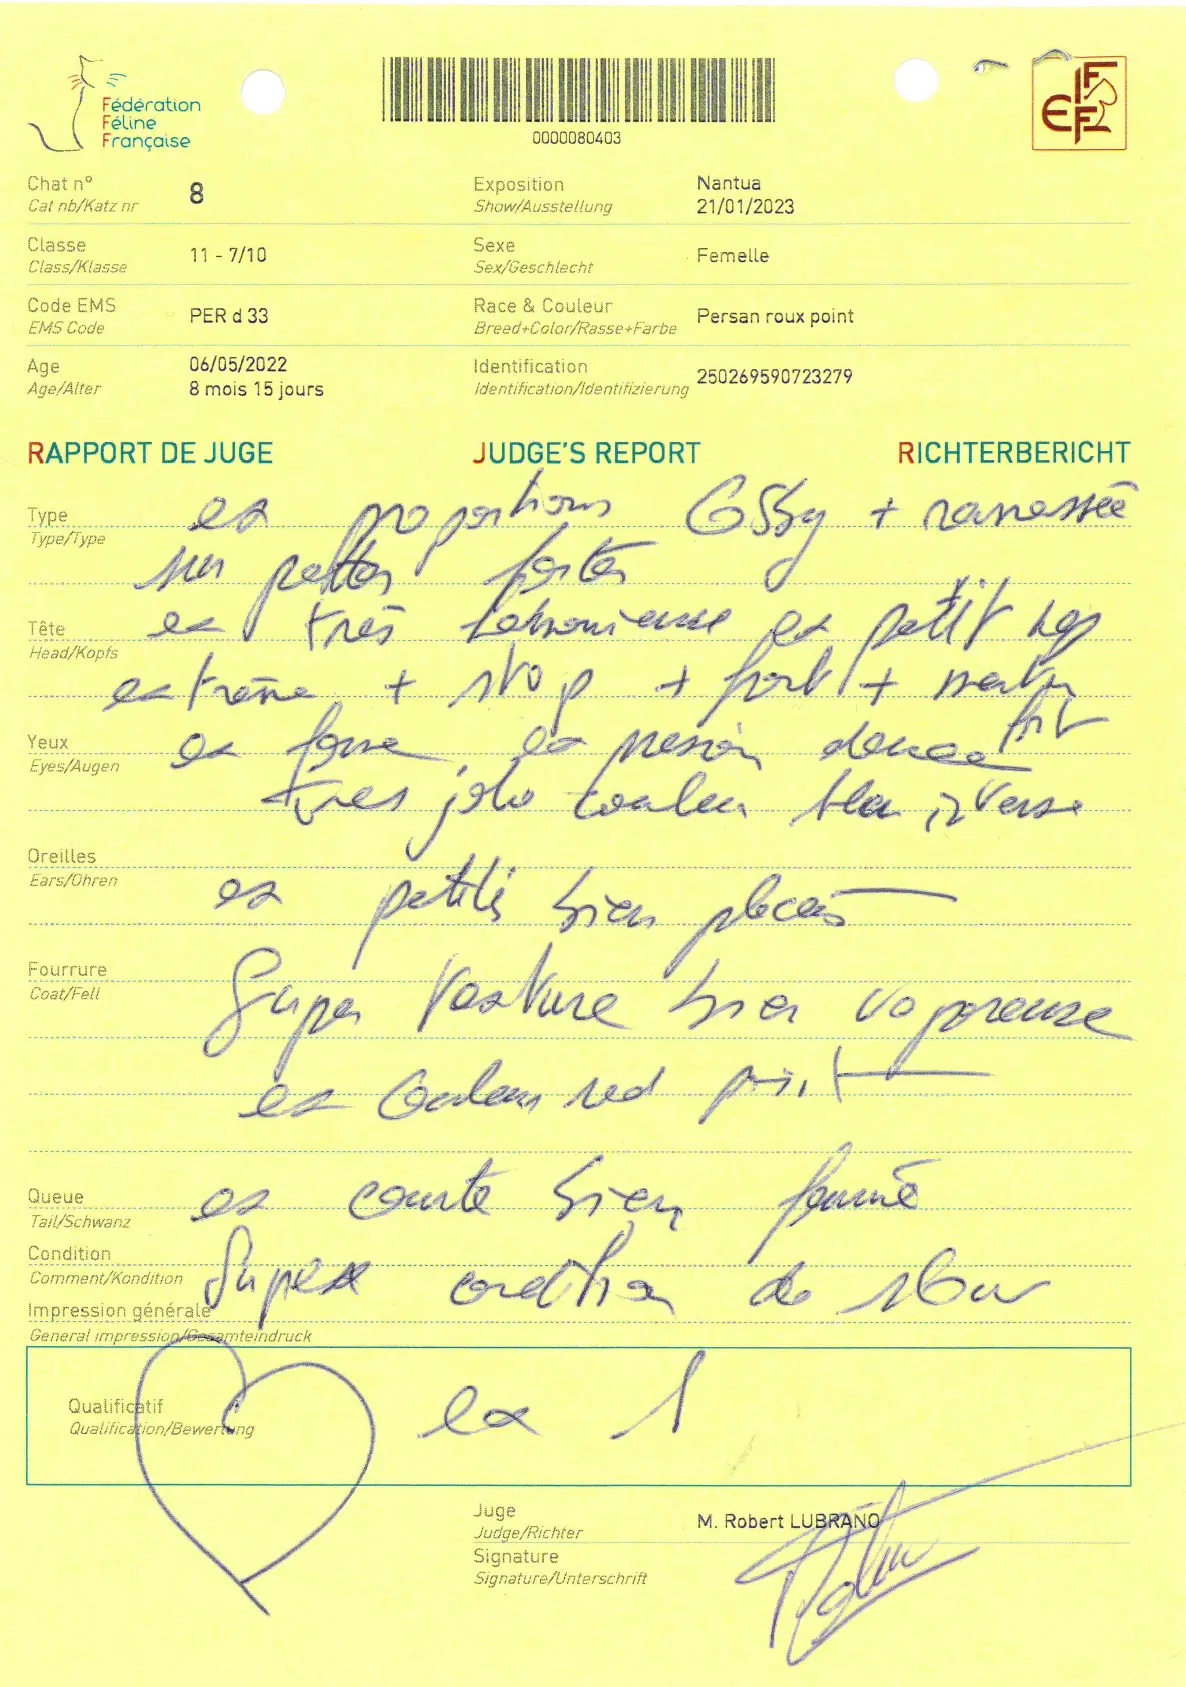 Fédération
Féline
Française
0000080403
FIFE
Chat n°
Cat nb/Katz nr
8
Exposition
Show/Ausstellung
Nantua
21/01/2023
Classe
Class/Klasse
11 - 7/10
Sexe
Sex/Geschlecht
Femelle
Code EMS
EMS Code
PER d 33
Race & Couleur
Breed+Color/Rasse+Farbe
Persan roux point
Age
Age/Alter
06/05/2022
8 mois 15 jours
Identification
Identification/Identifizierung
250269590723279
RAPPORT DE JUGE JUDGE'S REPORT RICHTERBERICHT
Type
Type/Type
ex proportions Cobby + ramassée
sur pattes fortes
Tête
Head/Kopfs
ex très harmonieuse ex petit nez
extrême + stop + fort +
Yeux
Eyes/Augen
ex forme, ex douce
très jolie couleur bleu intense
Oreilles
Ears/Ohren
ex petites bien placées
Fourrure
Coat/Fell
Super texture bien vaporeuse
ex couleur red point
Queue
Tail/Schwanz
ex courte bien fournie
Condition
Comment/Kondition
Super condition de show
Impression générale
General impression/Gesamteindruck
Qualificatif
Qualification/Bewertung
ex 1
Juge
Judge/Richter
M. Robert LUBRANO
Signature
Signature/Unterschrift